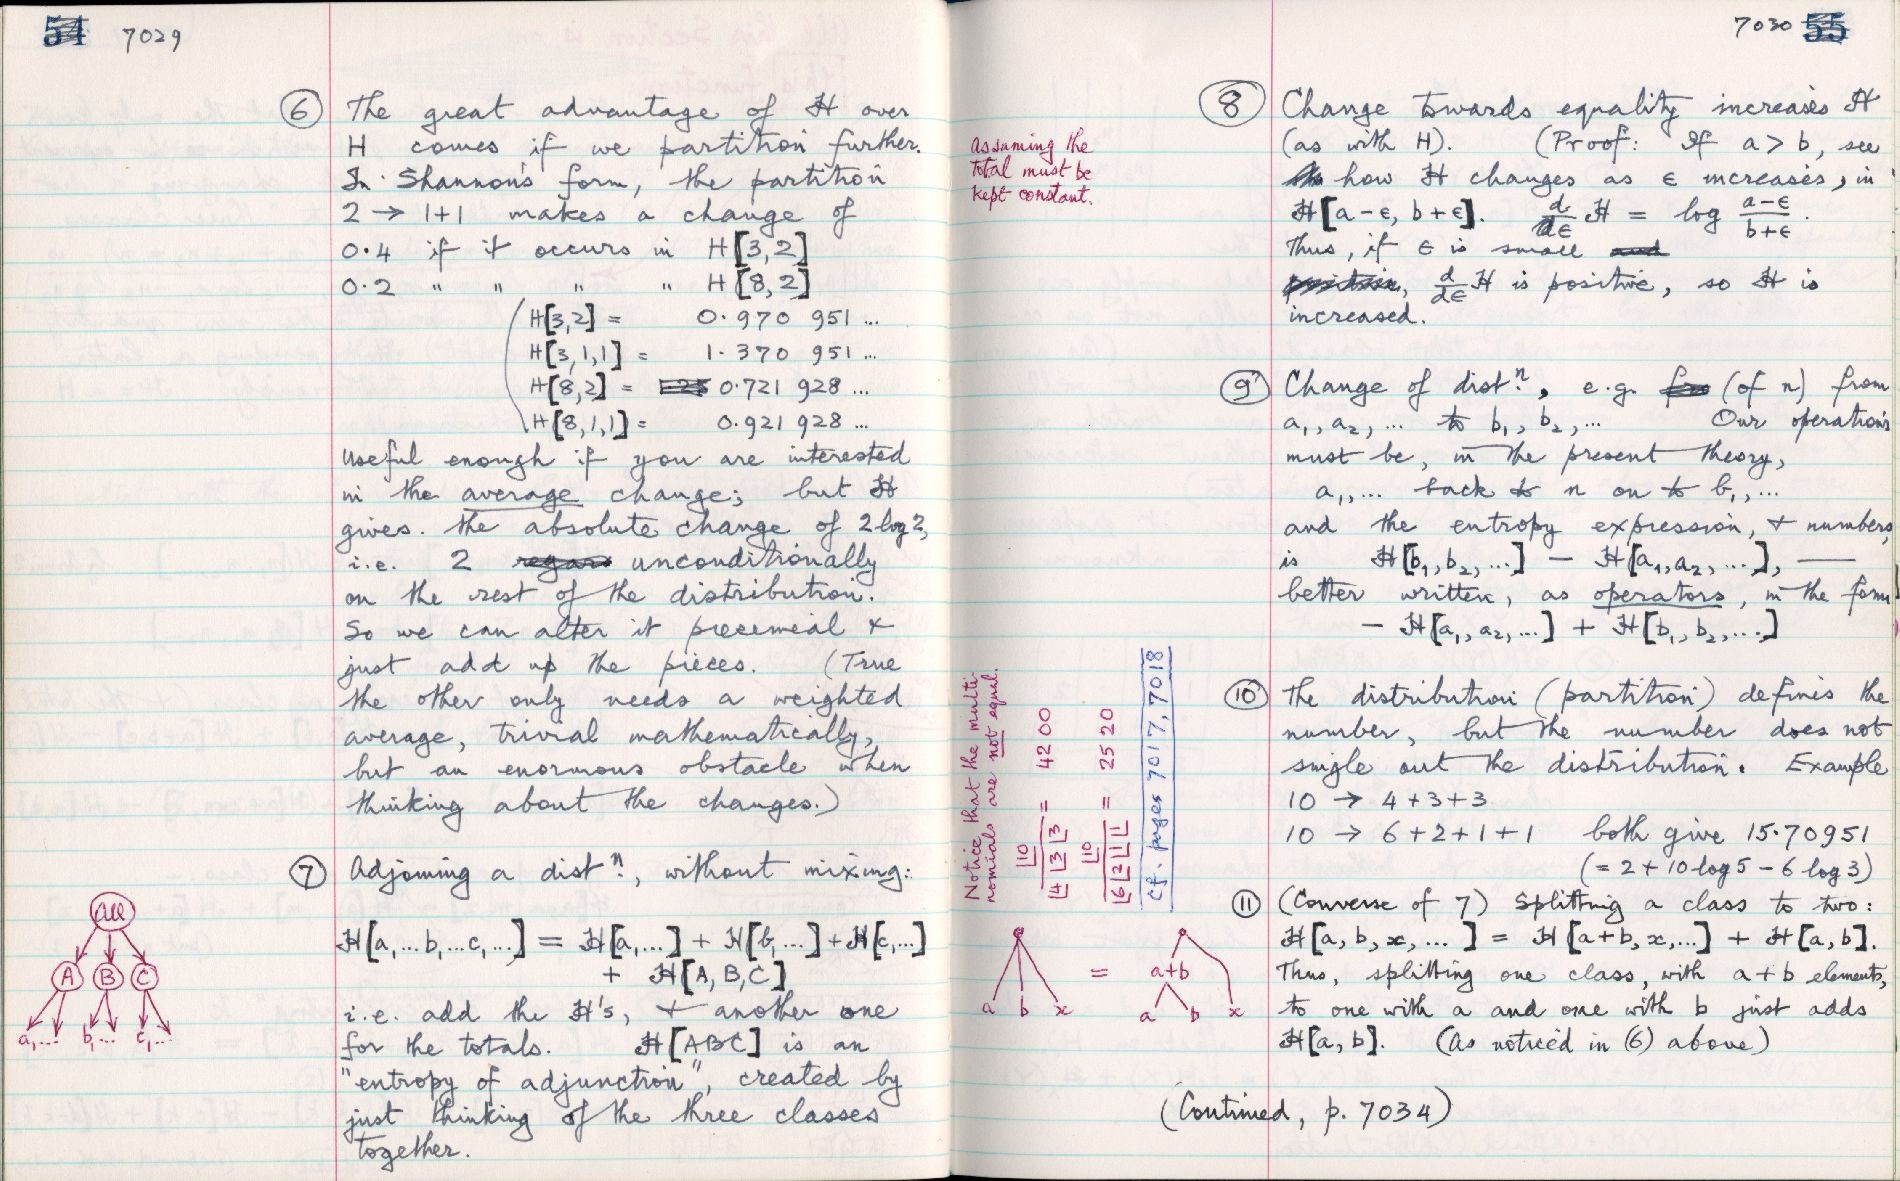 54 7029
⑥ The great advantage of ℋ over
H comes if we partition further.
In Shannon's form, the partition
2 → 1+1 makes a change of
0.4 if it occurs in H[3,2]
0.2 " " " " H[8,2]
H[3,2] = 0.970 951 ...
H[3,1,1] = 1.370 951 ...
H[8,2] = 0.721 928 ...
H[8,1,1] = 0.921 928 ...
useful enough if you are interested
in the average change; but ℋ
gives the absolute change of 2 log 2,
i.e. 2 unconditionally
on the rest of the distribution.
So we can alter it piecemeal &
just add up the pieces. (True
the other only needs a weighted
average, trivial mathematically,
but an enormous obstacle when
thinking about the changes.)
⑦ Adjoining a distⁿ., without mixing:
ℋ[a,...b,...c,...] = ℋ[a,...] + ℋ[b,...] + ℋ[c,...]
+ ℋ[A,B,C]
i.e. add the ℋ's, + another one
for the totals. ℋ[ABC] is an
"entropy of adjunction", created by
just thinking of the three classes
together.
All
A B C
a,... b,... c,...
7030 55
⑧ Change towards equality increases ℋ
(as with H). (Proof: If a > b, see
how ℋ changes as ε increases, in
ℋ[a-ε, b+ε]. d/dε ℋ = log (a-ε)/(b+ε).
Thus, if ε is small
d/dε ℋ is positive, so ℋ is
increased.
assuming the
total must be
kept constant.
⑨ Change of distⁿ., e.g. (of n) from
a₁, a₂, ... to b₁, b₂, ... Our operations
must be, in the present theory,
a₁,... back to n on to b₁,...
and the entropy expression, + numbers,
is ℋ[b₁,b₂,...] - ℋ[a₁,a₂,...], —
better written, as operators, in the form
- ℋ[a₁,a₂,...] + ℋ[b₁,b₂,...]
⑩ The distribution (partition) defines the
number, but the number does not
single out the distribution. Example
10 → 4+3+3
10 → 6+2+1+1 both give 15.70951
(= 2 + 10 log 5 - 6 log 3)
Notice that the multi-
nomials are not equal.
⌊10 / ⌊4 ⌊3 ⌊3 = 4200
⌊10 / ⌊6 ⌊2 ⌊1 ⌊1 = 2520
cf. pages 7017, 7018
⑪ (Converse of 7) Splitting a class to two:
ℋ[a,b,x,...] = ℋ[a+b,x,...] + ℋ[a,b].
Thus, splitting one class, with a+b elements,
to one with a and one with b just adds
ℋ[a,b]. (As noticed in (6) above)
a b x = a+b a b x
(Continued, p. 7034)